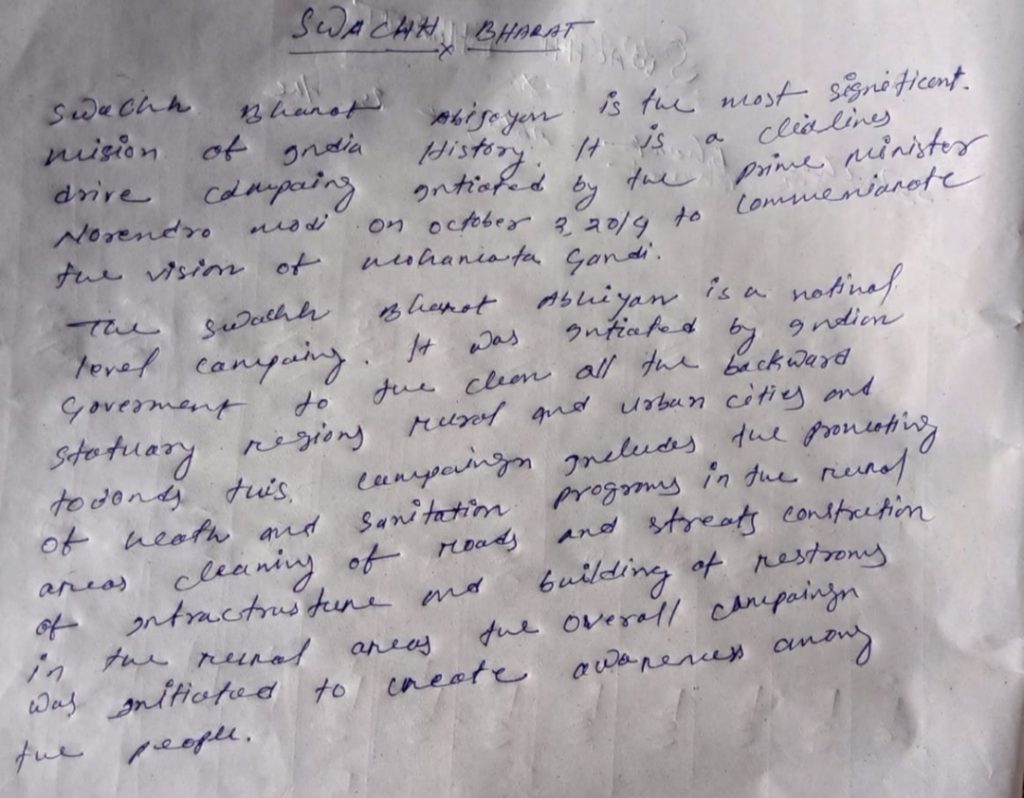 SWACHH BHARAT
Swachh Bharat Abigoyan is the most significant.
mision of India History. It is a clialines
drive campaing intiated by the prime minister
Norendro modi on october 2 2014 to commenianote
the vision of mohamcata Gandi.
The Swachh Bharat Abhiyan is a notinal
level campaing. It was intiated by indian
Goverment to the clean all the backward
statuary regions rural and urban cities and
towards this. campaingn includes the promoting
of heath and sanitation programs in the rural
areas cleaning of roads and streats constrution
of intractrusture and building of restroms
in the rural areas the overall campaingn
was initiated to create awareness among
the people.